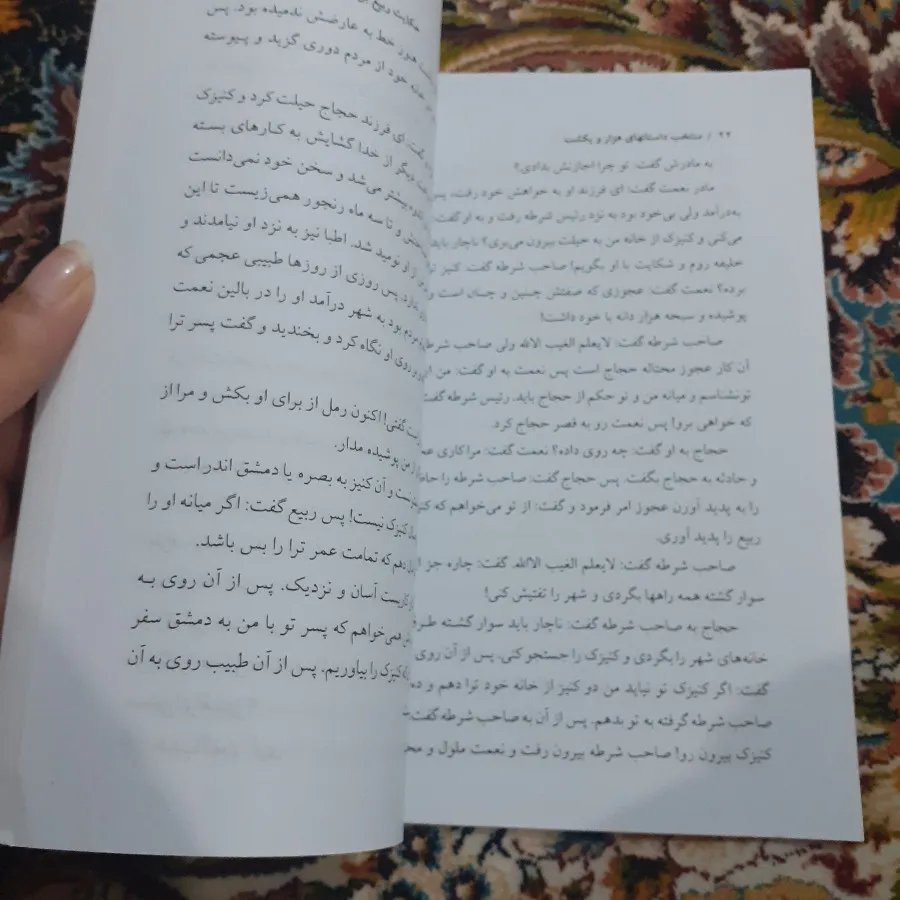 ۲۲ / منتخب داستانهای هزار و یکشب
به مادرش گفت: تو چرا اجازتش بدادی؟
مادر نعمت گفت: ای فرزند او به خواهش خود رفت، پس
به‌درآمد ولی بی‌خود بود به نزد رئیس شرطه رفت و به او گفت
می‌کنی و کنیزک از خانه من به حیلت بیرون می‌بری؟ ناچار باید
خلیفه روم و شکایت با او بگویم! صاحب شرطه گفت: کنیز
برده؟ نعمت گفت: عجوزی که صفتش چنین و چنان است و
پوشیده و سبحه هزار دانه با خود داشت!
صاحب شرطه گفت: لایعلم الغیب الاالله ولی صاحب شرطه
آن کار عجوز محتاله حجاج است پس نعمت به او گفت: من
تونشناسم و میانه من و تو حکم از حجاج باید. رئیس شرطه گفت
که خواهی برو! پس نعمت رو به قصر حجاج کرد.
حجاج به او گفت: چه روی داده؟ نعمت گفت: مرا کاری
و حادثه به حجاج بگفت. پس حجاج گفت: صاحب شرطه را
را به پدید آورن عجوز امر فرمود و گفت: از تو می‌خواهم که
ربیع را پدید آوری.
صاحب شرطه گفت: لایعلم الغیب الاالله. گفت: چاره جز
سوار گشته همه راهها بگردی و شهر را تفتیش کنی!
حجاج به صاحب شرطه گفت: ناچار باید سوار گشته
خانه‌های شهر را بگردی و کنیزک را جستجو کنی. پس از آن روی
گفت: اگر کنیزک تو نیاید من دو کنیز از خانه خود ترا دهم و
صاحب شرطه گرفته به تو بدهم. پس از آن به صاحب شرطه گفت:
کنیزک بیرون رو! صاحب شرطه بیرون رفت و نعمت ملول و
حکایت
هنوز خط به عارضش ندمیده بود. پس
خود از مردم دوری گزید و پیوسته
گفت: ای فرزند حجاج حیلت کرد و کنیزک
دیگر از خدا گشایش به کارهای بسته
بیشتر می‌شد و سخن خود نمی‌دانست
و تا سه ماه رنجور همی‌زیست تا این
از او نومید شد. اطبا نیز به نزد او نیامدند و
ندارد. پس روزی از روزها طبیبی عجمی که
بود به شهر درآمد او را در بالین نعمت
روی او نگاه کرد و بخندید و گفت پسر ترا
گفتی! اکنون رمل از برای او بکش و مرا از
من پوشیده مدار.
و آن کنیز به بصره یا دمشق اندر است و
کنیزک نیست! پس ربیع گفت: اگر میانه او را
دهم که تمامت عمر ترا را بس باشد.
آسان و نزدیک. پس از آن روی به
می‌خواهم که پسر تو با من به دمشق سفر
کنیزک را بیاوریم. پس از آن طبیب روی به آن